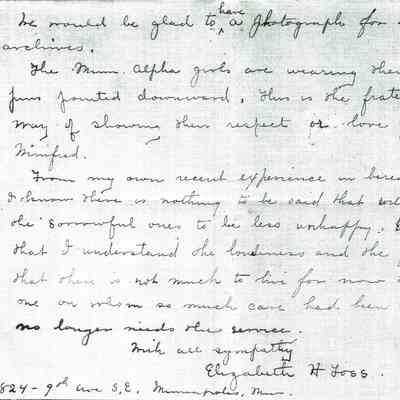 We would be glad to have a photograph for
archives.
The Minn. Alpha girls are wearing their
pins pointed downward, this is the frate
way of showing their respect or love
Winifred.
From my own recent experience in berea
I know there is nothing to be said that
the sorrowful ones to be less unhappy.
that I understand the loneliness and the
that there is not much to live for now
one on whom so much care had been
no longer needs the service.
With all sympathy
Elizabeth H Foss.
824 - 9th Ave S.E. Minneapolis, Minn.